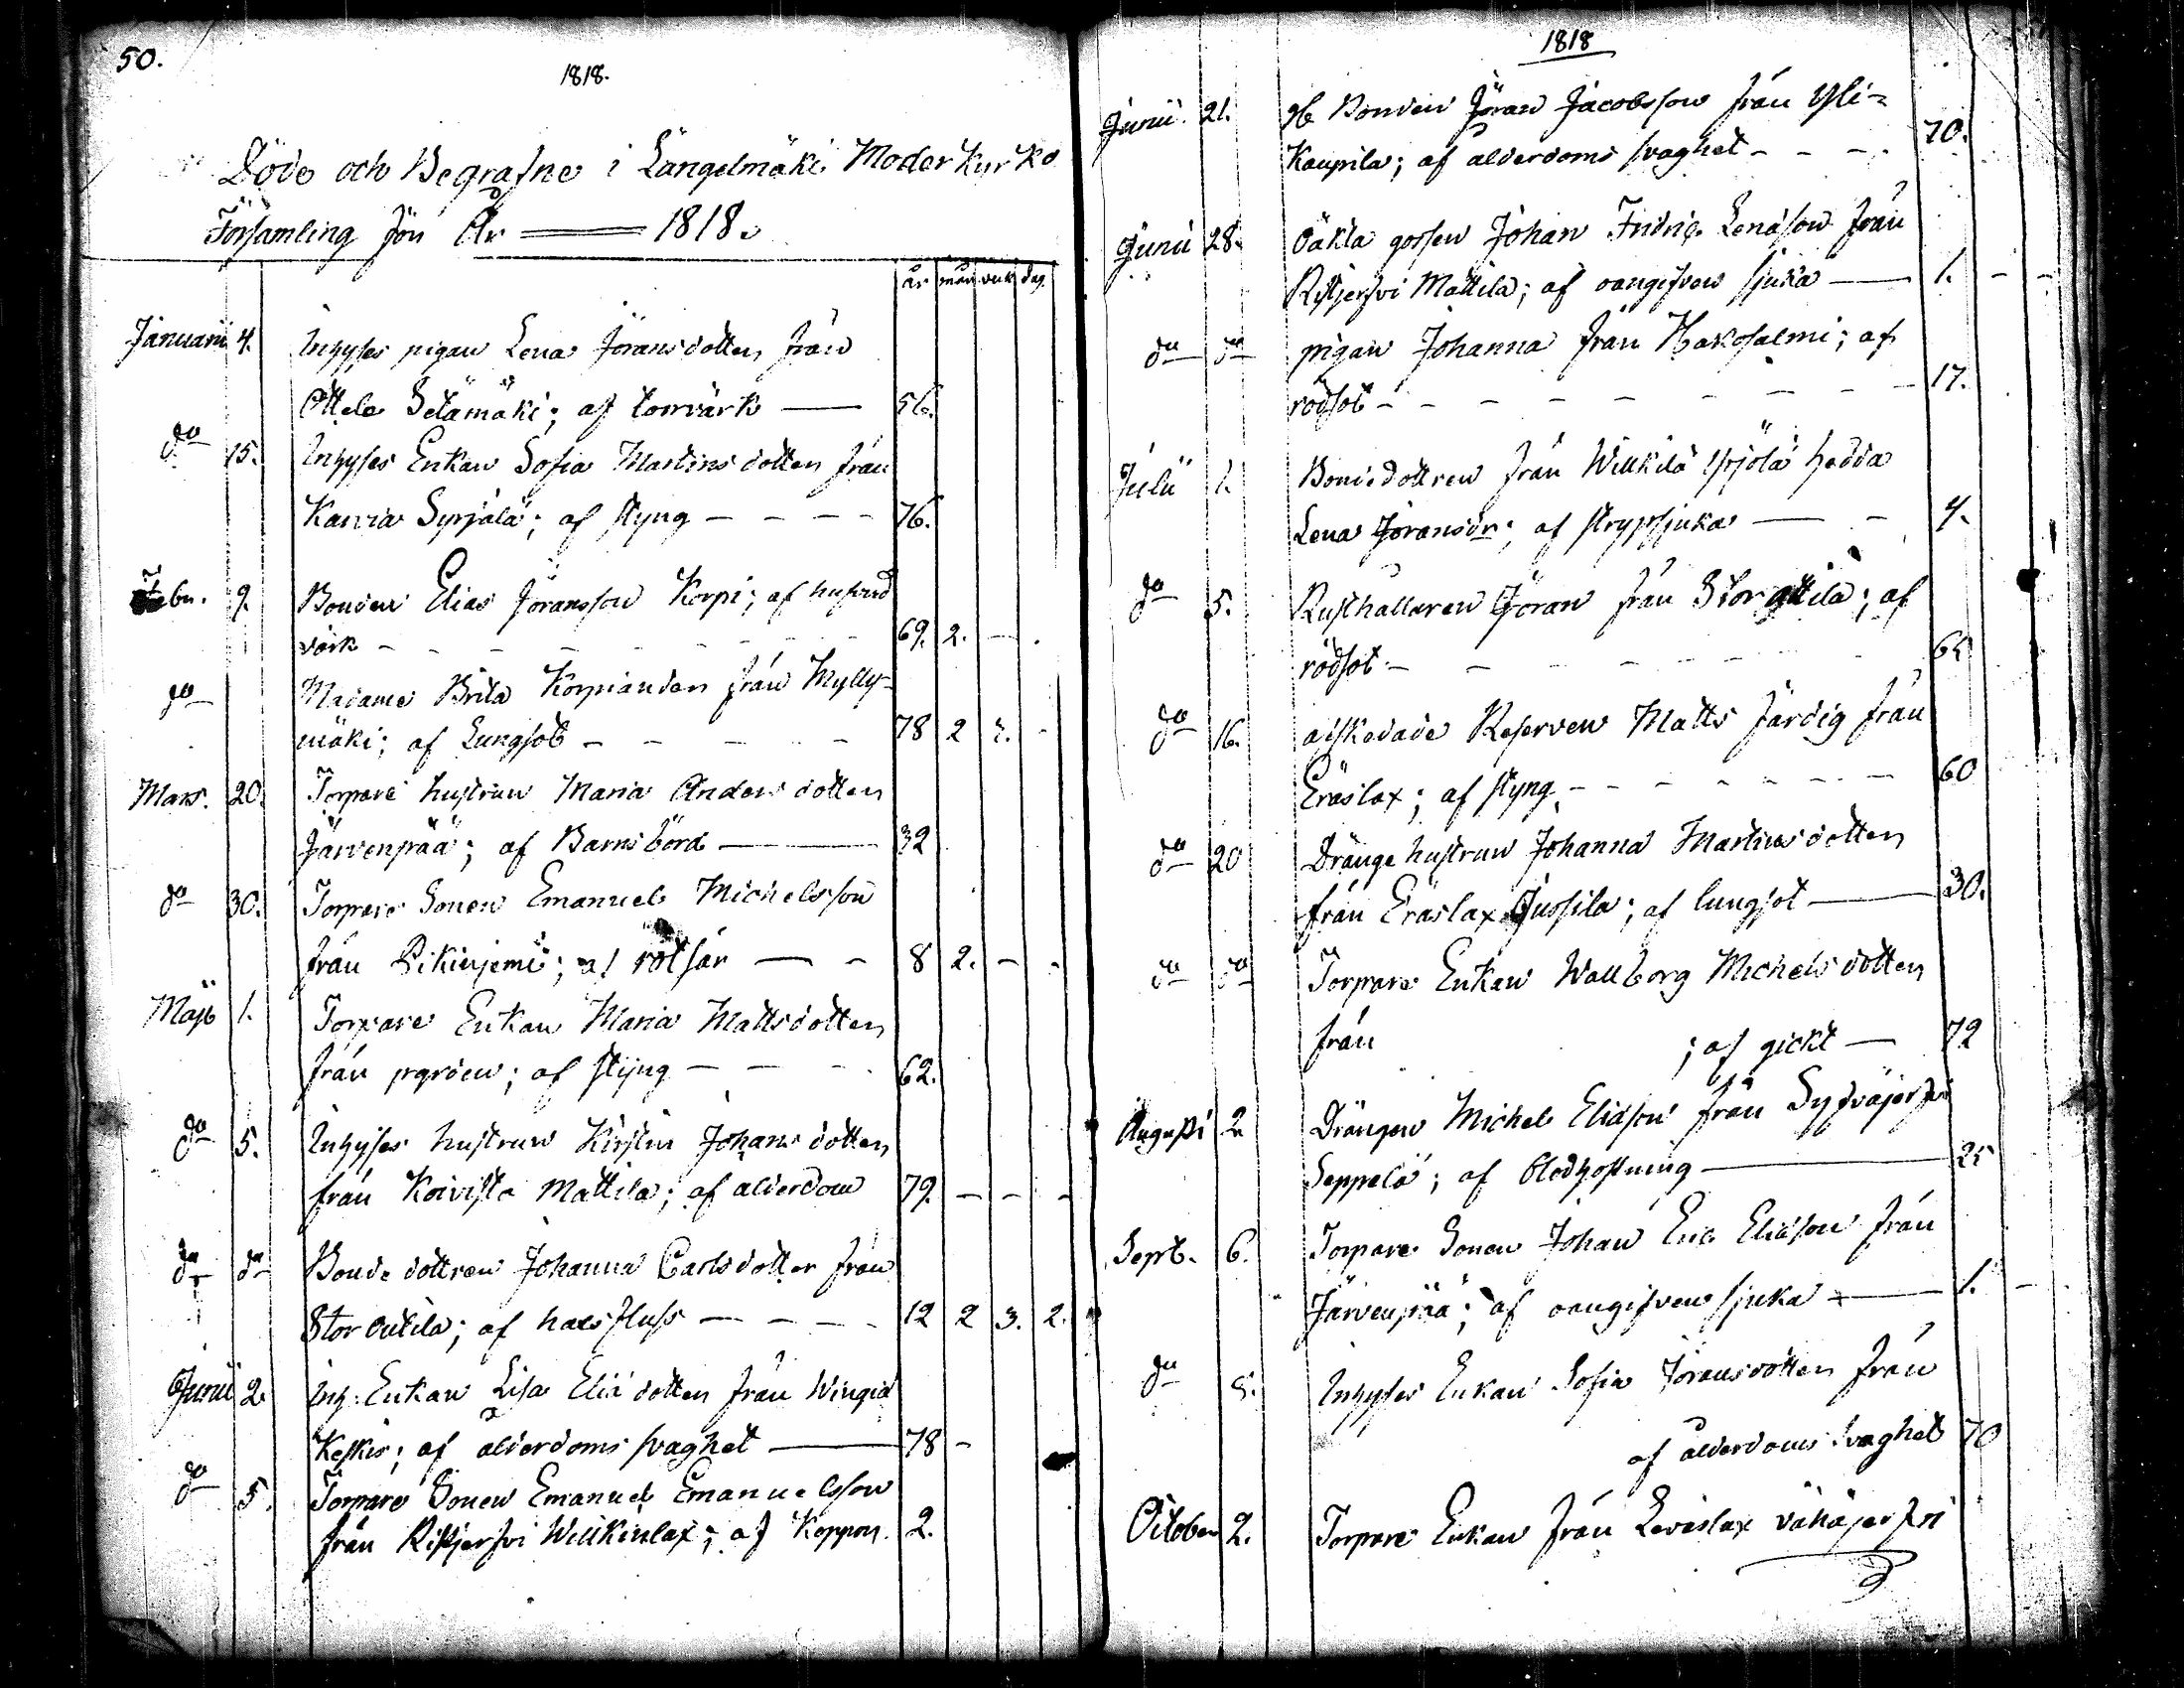 50.
1818.
Döde och Begrafne i Längelmäki Moderkyrko
Församling för År 1818.
år mån veck dag.
Januarii 4. Inhyses pigan Lena Jöransdotter från
Ottela Setämäki; af torrvärk — 56.
do 15. Inhyses Enkan Sofia Martinsdotter från
Karvia Syrjälä; af styng - - - - 76.
Febr. 9. Bonden Elias Jöransson Korpi; af hufvud
värk - - - - 69. 2. - .
do Madame Brita Korpiander från Mylly-
mäki; af Lungsot - - - - - 78 2
Mars. 20. Torpare hustrun Maria Andersdotter
Järvenpää; af Barnsbörd — 32
do 30. Torpare Sonen Emanuel Michelsson
från ; af rötsår — - 8 2. - -
Maji 1. Torpare Enkan Maria Mattsdotter
från ; af styng - - - 62.
do 5. Inhyses hustrun Kirstin Johansdotter
från Koivisto Mattila; af ålderdom 79. - - -
do do Bonde dottren Johanna Carlsdotter från
Stor Outila; af halsfluss - - - - 12 2 3. 2.
Junii 2. Inh: Enkan Lisa Eliædotter från
Keskis; af ålderdoms svaghet — 78 -
do 5. Torpare Sonen Emanuel Emanuelsson
från Ristjerfvi Willkinlax; af Koppor. 2.
1818
Junii. 21. Bonden Jöran Jacobsson från Yli-
Kaupila; af ålderdoms svaghet - - - 70.
Junii 28. Oäkta gossen Johan Fridric Lenæson från
Ristjerfvi Mattila; af oangifven sjuka — 1. - -
do do pigan Johanna från Hakosalmi; af
rödsot - - - - - - - - - 17.
Julii 1. Bondedottren från Willkilä Yrjölä Hedda
Lena Jöransdr; af strypsjuka — - 4.
do 5. Rusthållaren Jöran från Stor ; af
rödsot - - - - - - 65
do 16. afskedade Reserven Matts Färdig från
Eräslax; af styng - - - - - - - 60
do 20 Dränge hustrun Johanna Martinsdotter
från Eräslax Jussila; af lungsot — 30.
do do Torpare Enkan Wallborg Michelsdotter
från ; af gickt — 72
Augusti 2 Drängen Michel Eliæson från Sysväjerfvi
Seppelä; af Blodhostning — 25
Sept. 6. Torpare Sonen Johan Eric Eliæson från
Järvenpää; af oangifven sjuka — 1. -
do 8. Inhyses Enkan Sofia Jöransdotter från
af ålderdoms svaghet 70
October 2. Torpare Enkan från Leväslax vähäjerfvi